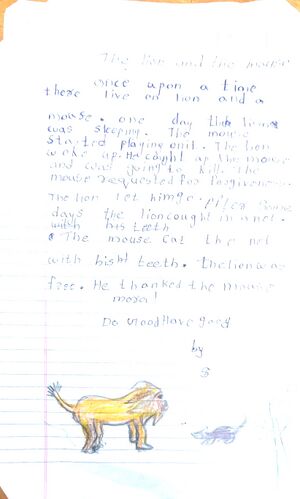 The lion and the mouse
once upon a time
there live en lion and a
mouse. one day the lion
was sleeping. The mouse
started playing onit. The lion
woke up. He caught up the mouse
and was going to kill. the
mouse requested for forgiveness.
The lion let himgo. After some
days the lion cought in a net.
with his teeth
The mouse cat the net
with his teeth. the lion was
free. He thanked the mouse
moral
Do Good Have Good
by
S